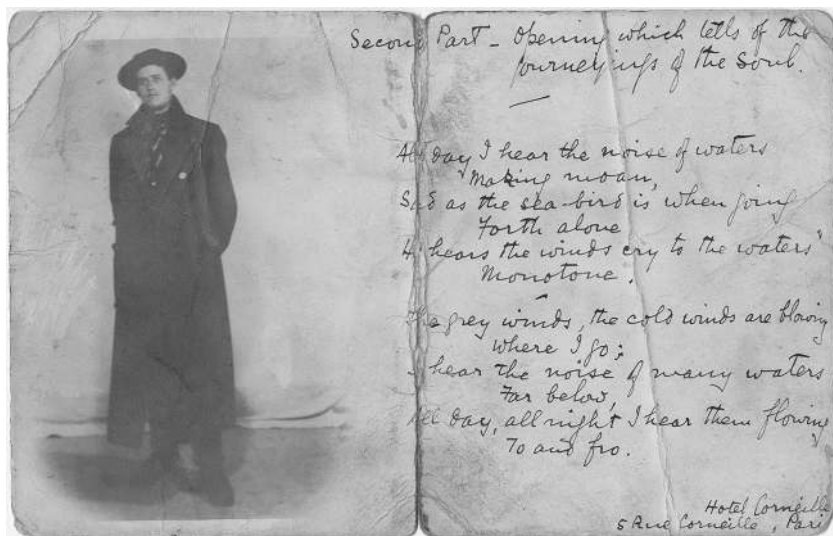 Second Part – Opening which tells of the
journeyings of the Soul.
All day I hear the noise of waters
Making moan,
Sad as the sea-bird is when going
Forth alone
He hears the winds cry to the waters'
Monotone.
The grey winds, the cold winds are blowing
where I go;
I hear the noise of many waters
Far below,
All day, all night I hear them flowing
To and fro.
Hotel Corneille
5 Rue Corneille, Paris